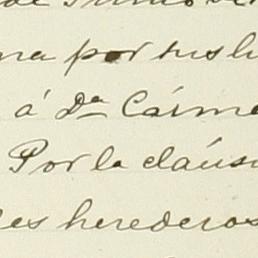 de
na por tus h
á Da Cárme
Por la cláus
es herederos